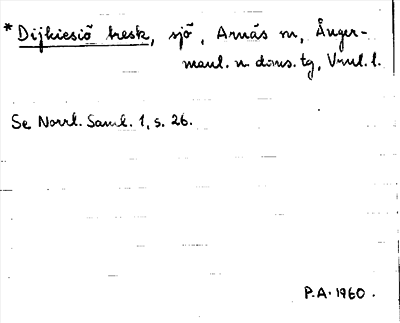 * Dijkiesiö tresk, sjö, Arnäs sn, Ånger-
manl. n. doms. tg, Vnl. l.
Se Norrl. Saml. 1, s. 26.
P.A. 1960.